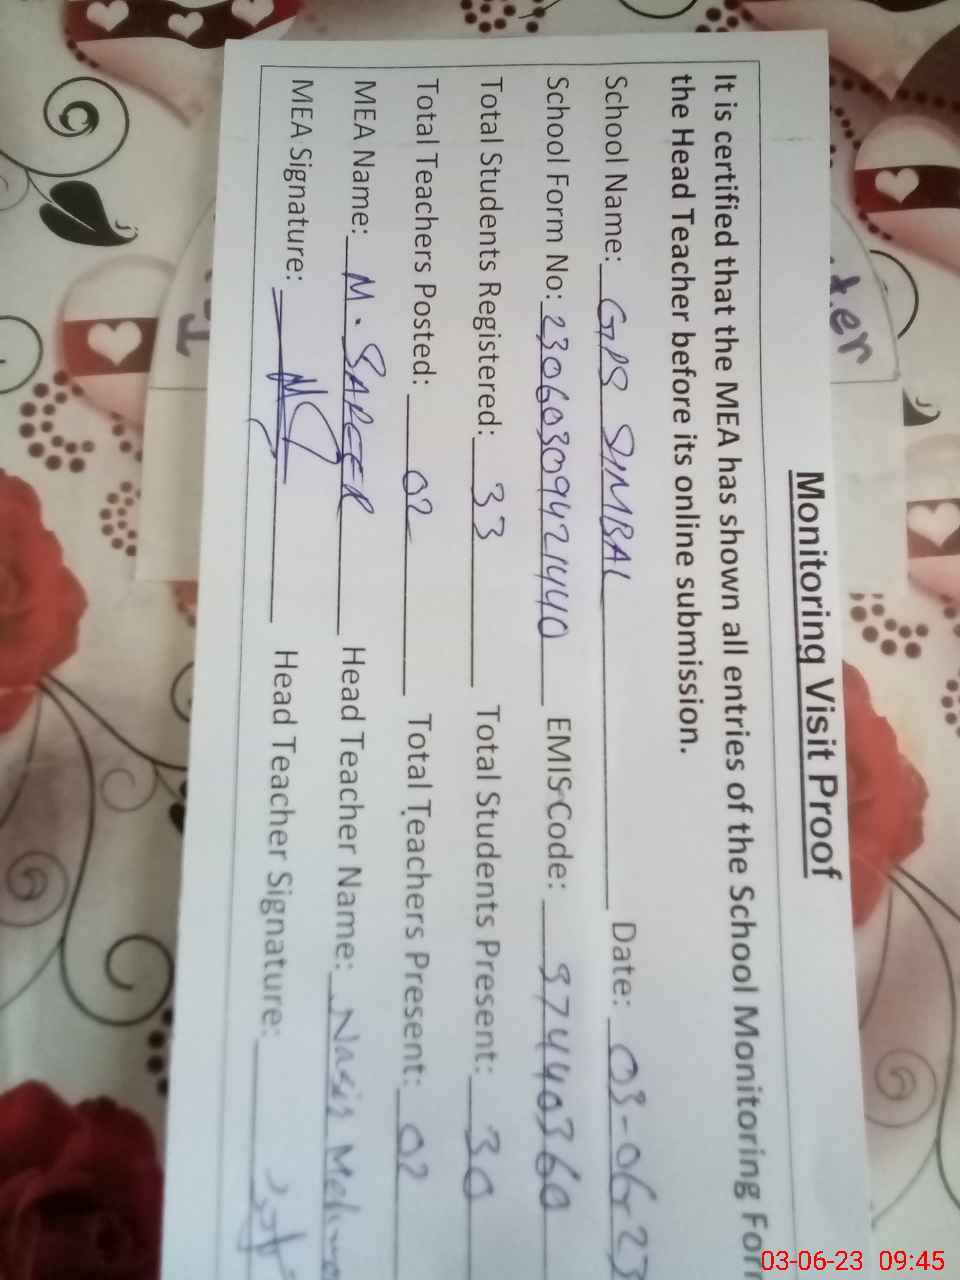 Monitoring Visit Proof
It is certified that the MEA has shown all entries of the School Monitoring For
the Head Teacher before its online submission.
School Name: GPS SIMBAL Date: 03-06-23
School Form No: 23060309421440 EMIS Code: 37440360
Total Students Registered: 33 Total Students Present: 30
Total Teachers Posted: 02 Total Teachers Present: 02
MEA Name: M. SAFEER Head Teacher Name: Nasir
MEA Signature: Head Teacher Signature:
ter
03-06-23 09:45